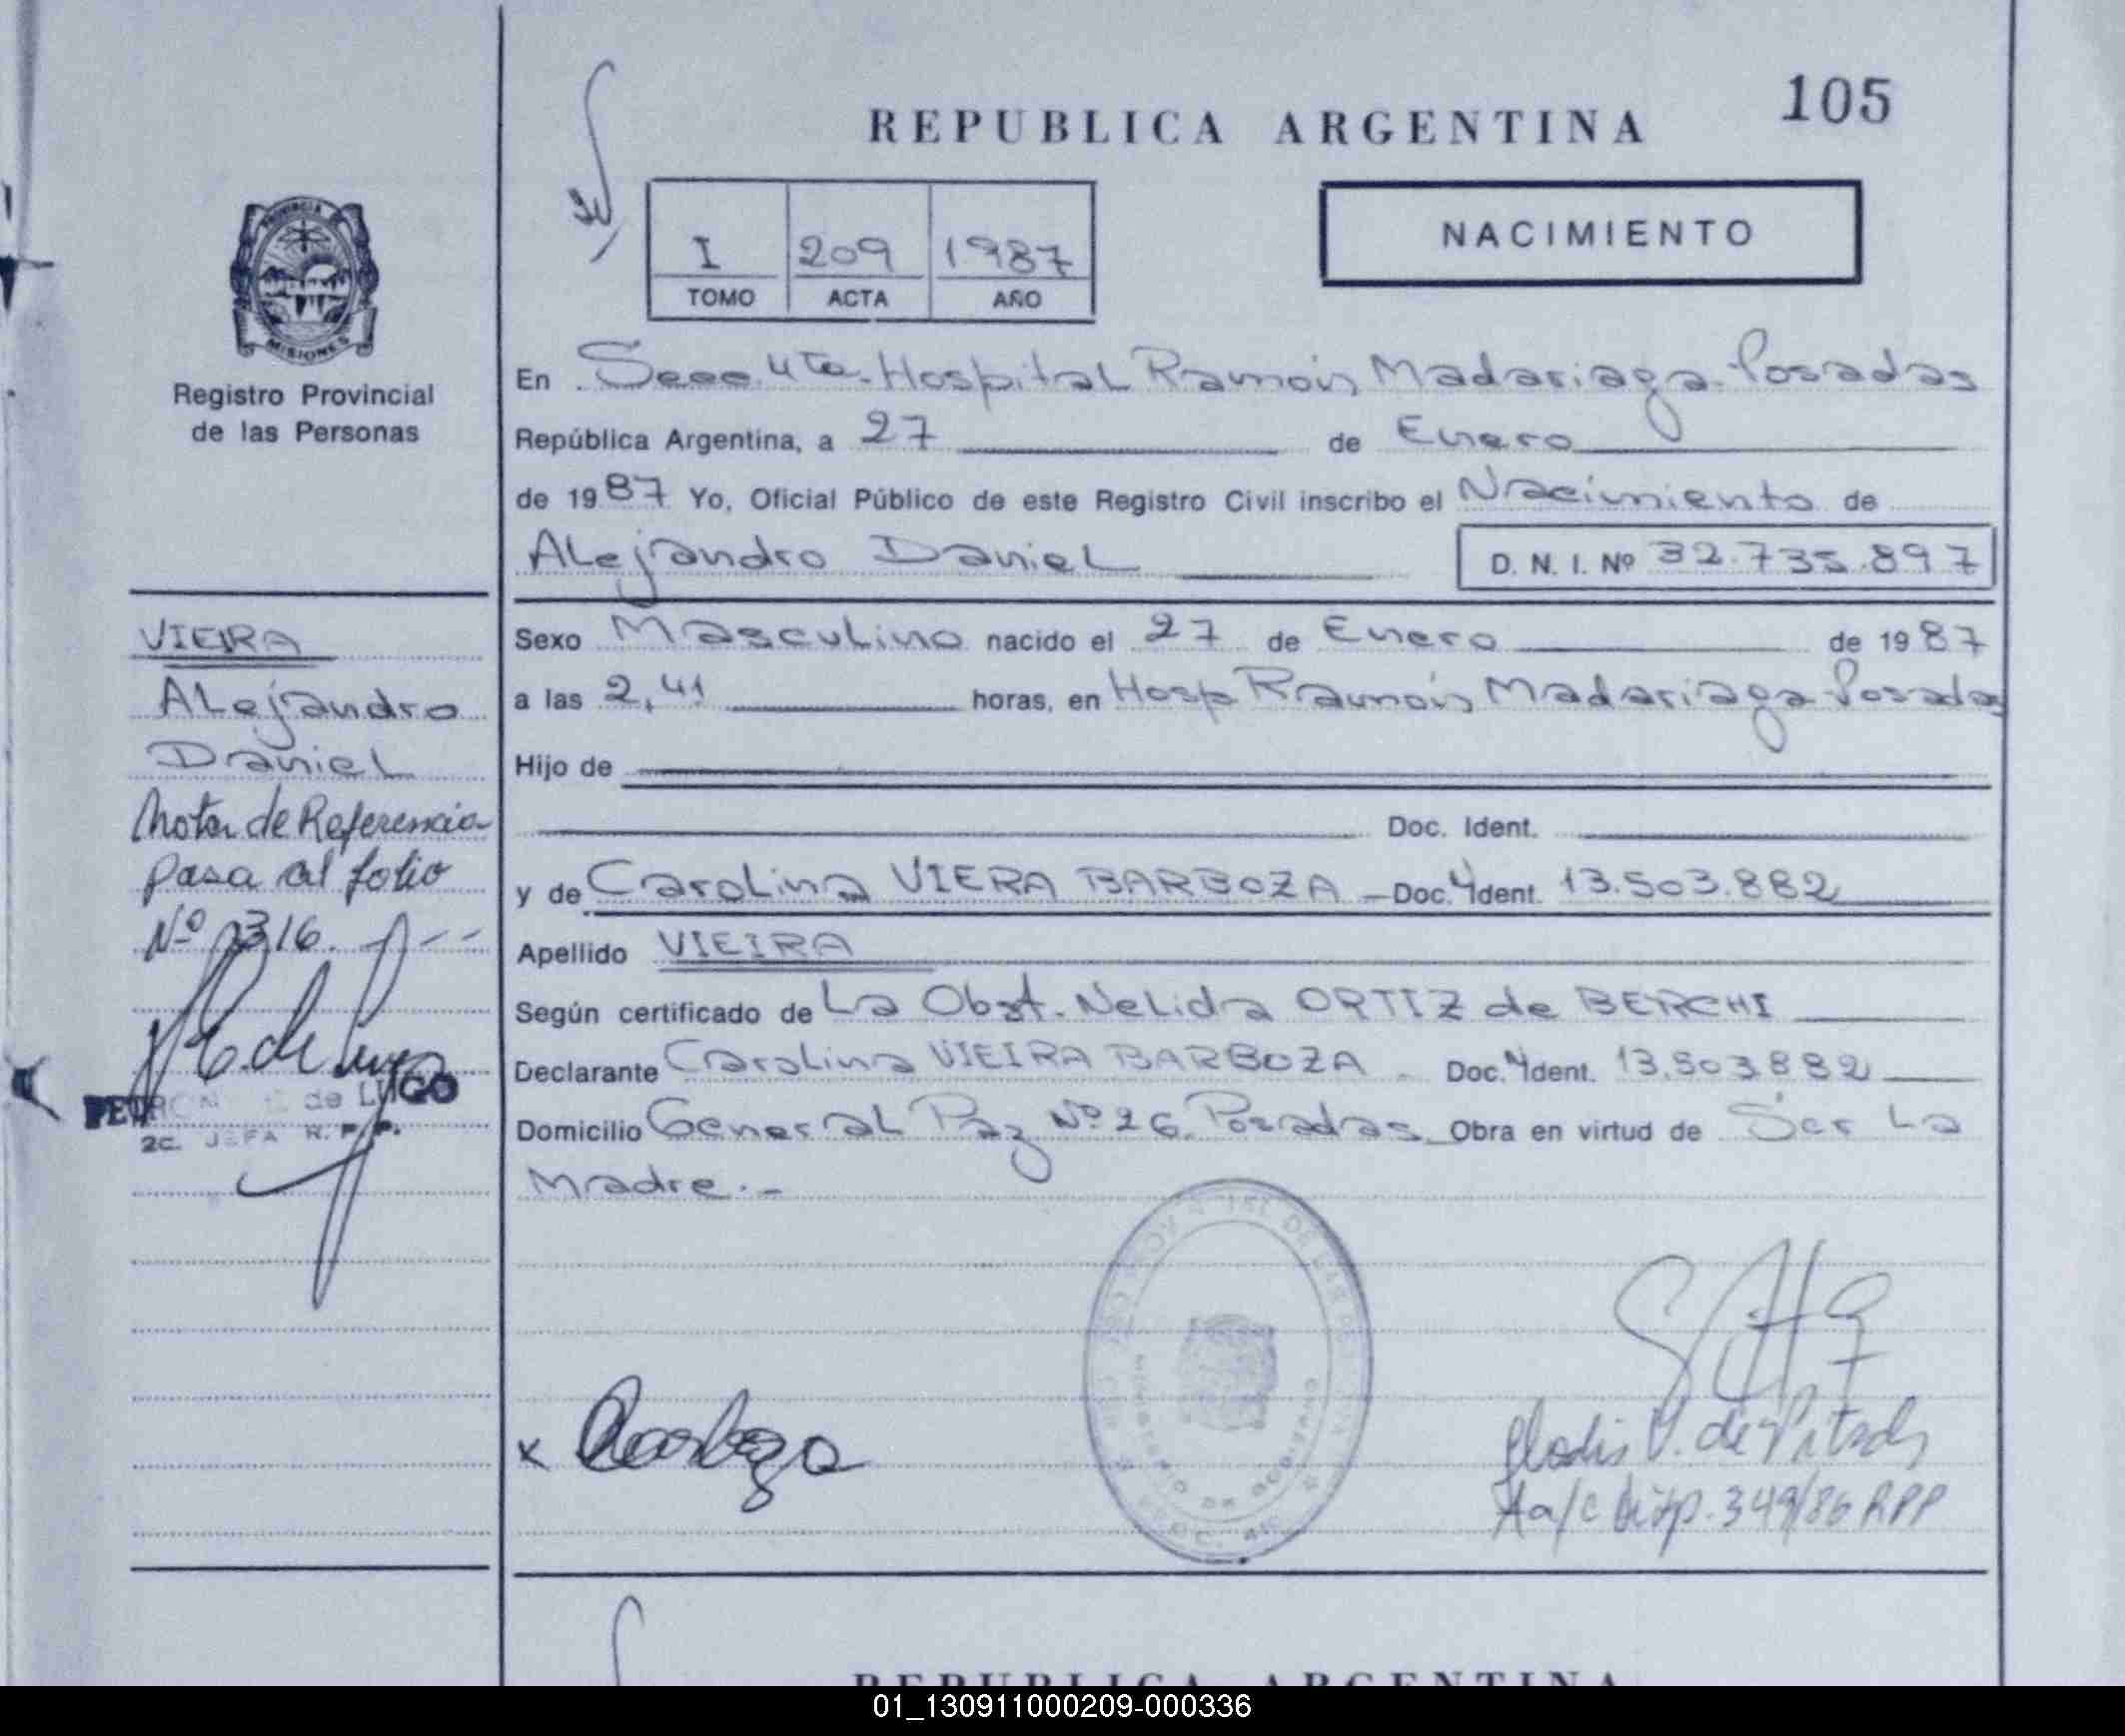 105
REPUBLICA ARGENTINA
I 209 1987
TOMO ACTA AÑO
NACIMIENTO
PROVINCIA DE
MISIONES
Registro Provincial
de las Personas
En Secc 4ta. Hospital Ramón Madariaga Posadas
República Argentina, a 27 de Enero
de 1987 Yo, Oficial Público de este Registro Civil inscribo el Nacimiento de
Alejandro Daniel D. N. I. Nº 32.735.897
Sexo Masculino nacido el 27 de Enero de 1987
a las 2,41 horas, en Hosp Ramón Madariaga Posadas
Hijo de
Doc. Ident.
y de Carolina VIERA BARBOZA - Doc. Ident. 13.503.882
Apellido VIEIRA
Según certificado de La Obst. Nelida ORTIZ de BERCHI
Declarante Carolina VIEIRA BARBOZA Doc. Ident. 13.503.882
Domicilio General Paz Nº 26. Posadas Obra en virtud de Ser La
Madre.-
VIEIRA
Alejandro
Daniel
Notas de Referencia
pasa al folio
Nº 316.
de LUGO
2c. JEFA R. P. P.
x Barboza
V. de
A a/c Disp. 349/86 RPP
REPUBLICA ARGENTINA
01_130911000209-000336